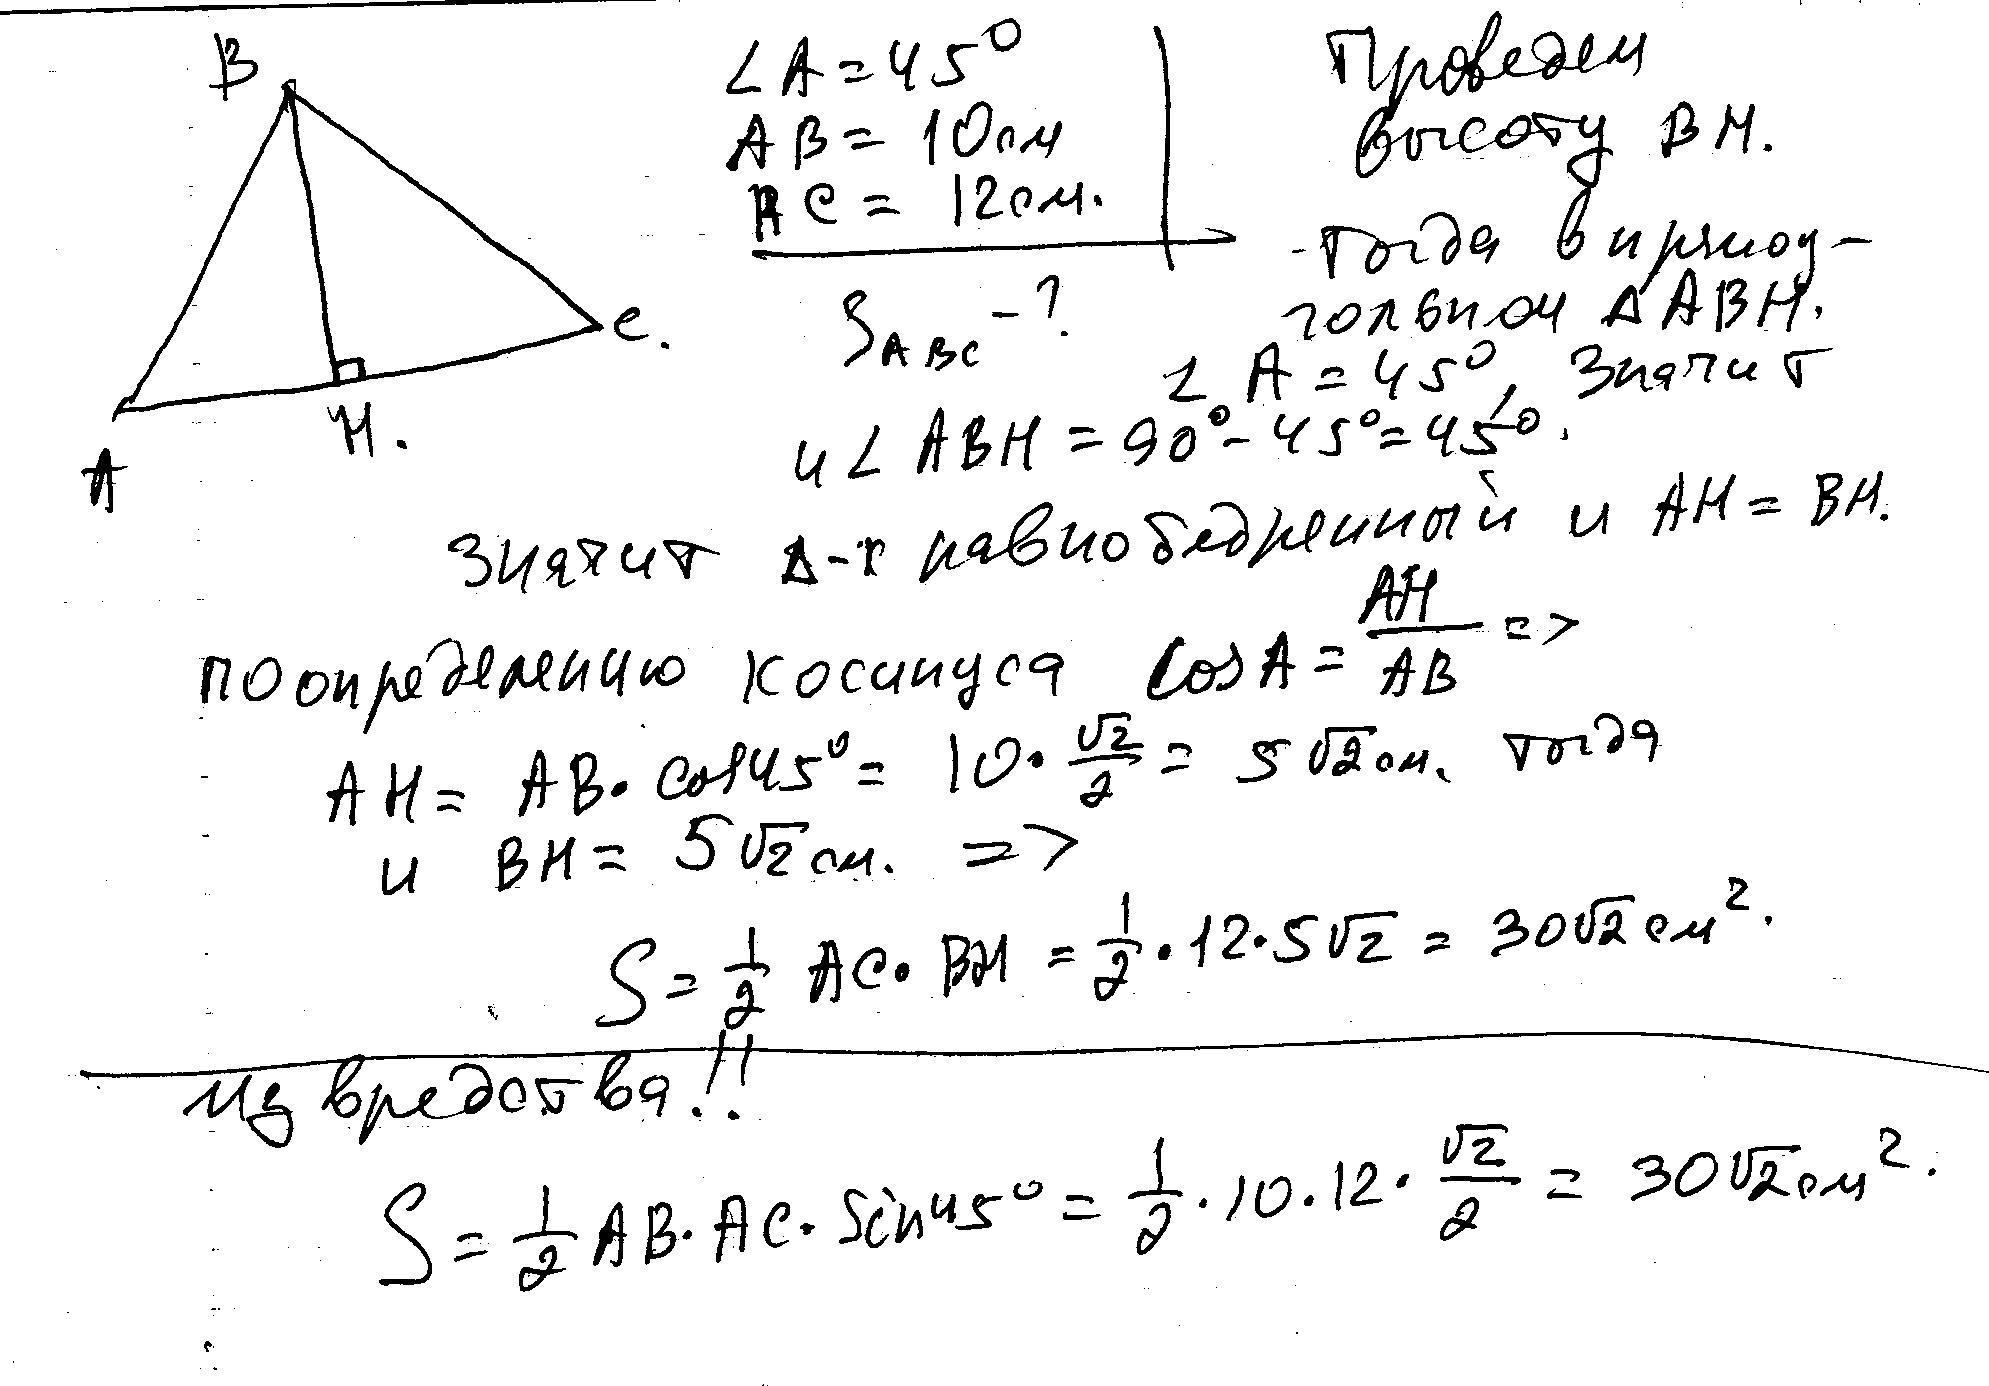 B
C.
H.
A
∠A = 45°
AB = 10см
AC = 12см.
S_ABC - ?
Проведем
высоту BH.
Тогда в прямоу-
гольном ΔABH.
∠A = 45°, значит
и ∠ABH = 90° - 45° = 45°.
Значит Δ-к равнобедренный и AH = BH.
По определению косинуса cosA = AH/AB =>
AH = AB · cos45° = 10 · √2/2 = 5√2 см. Тогда
и BH = 5√2 см. =>
S = 1/2 AC · BH = 1/2 · 12 · 5√2 = 30√2 см².
Из вредства!!
S = 1/2 AB · AC · Sin45° = 1/2 · 10 · 12 · √2/2 = 30√2 см².